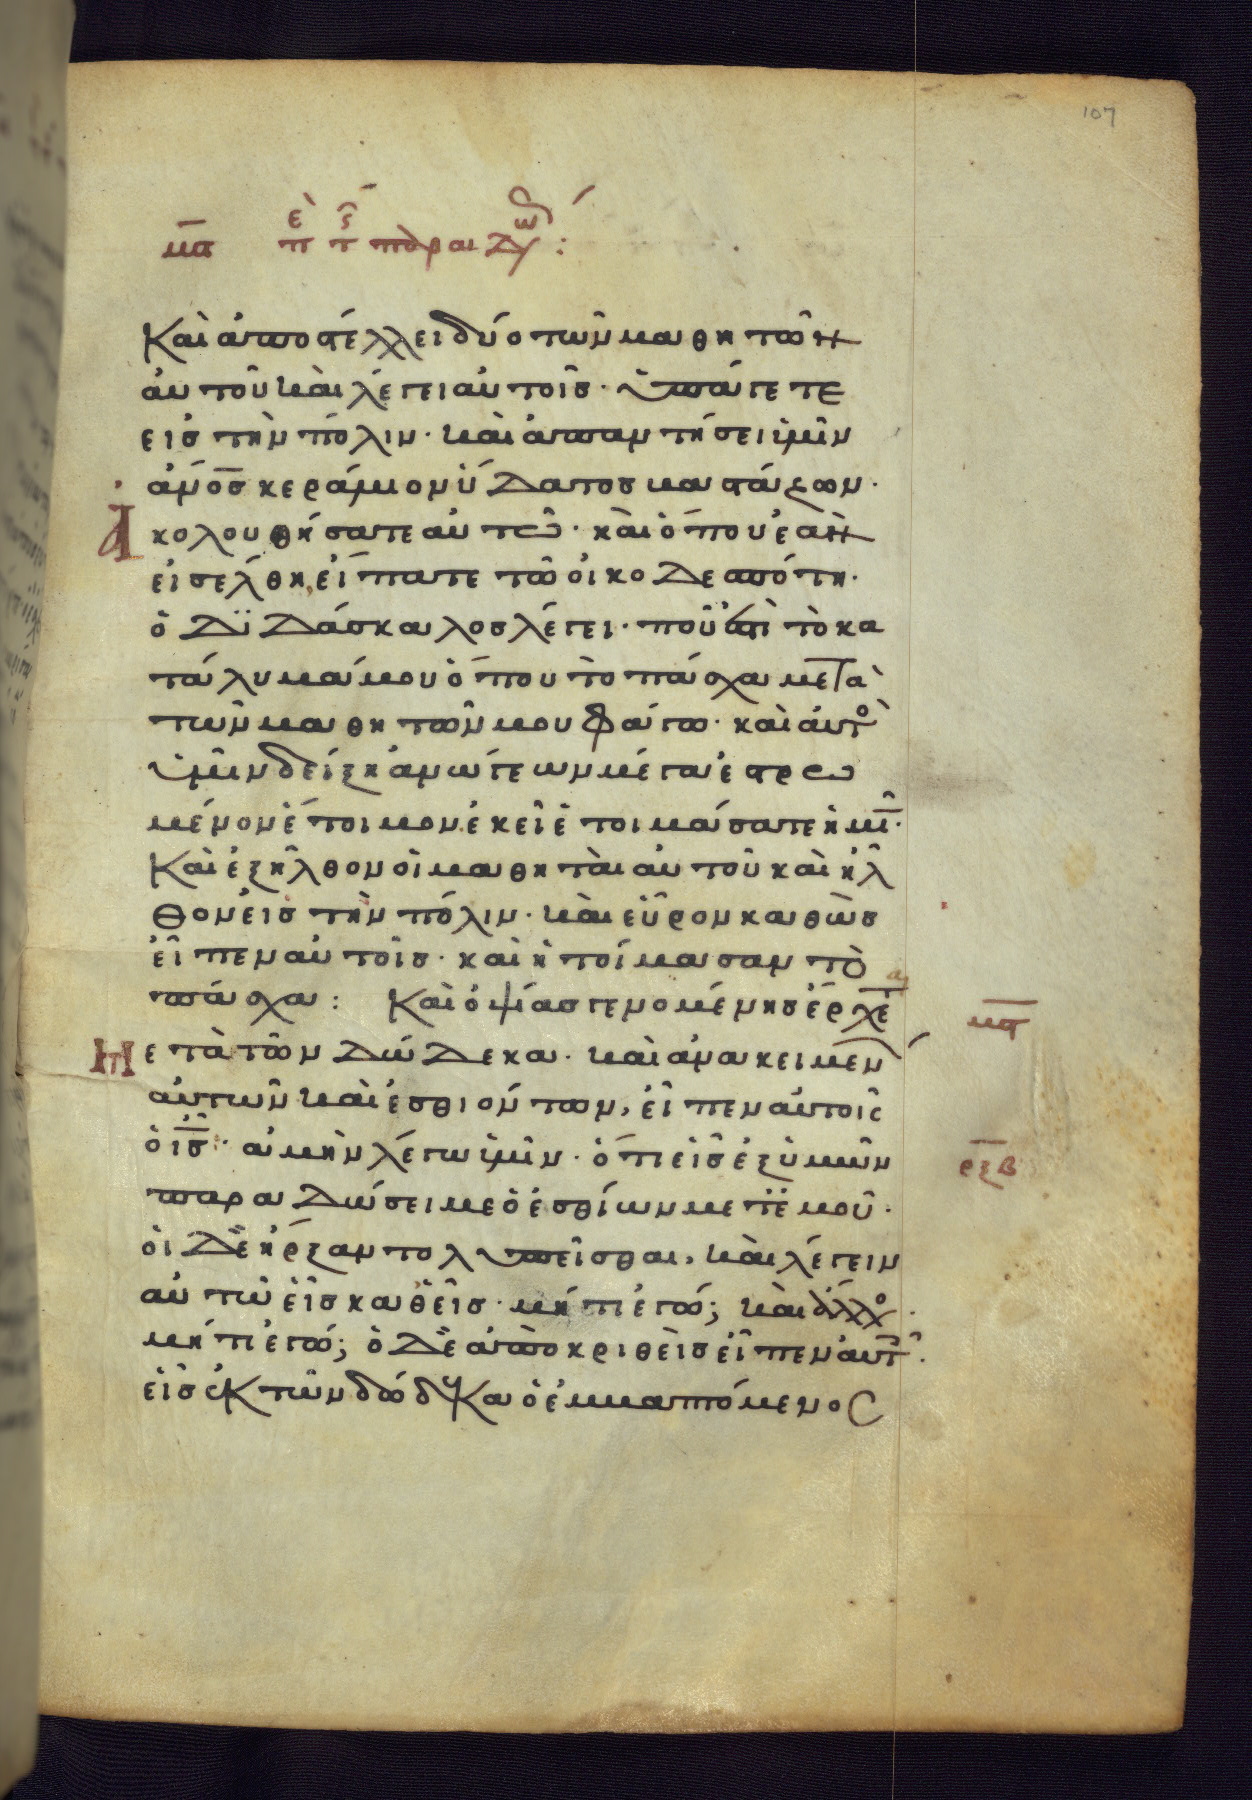 107
μα περὶ τῆς παραδώ:
Καὶ ἀποστέλλει δύο τῶν μαθητῶν
αὐτοῦ καὶ λέγει αὐτοῖς· ὑπάγετε
εἰς τὴν πόλιν· καὶ ἀπαντήσει ὑμῖν
ἄνος κεράμιον ὕδατος βαστάζων·
ἀκολουθήσατε αὐτῶ· καὶ ὅπου ἐὰν
εἰσέλθη, εἴπατε τῶ οἰκοδεσπότη·
ὁ διδάσκαλος λέγει· ποῦ ἐστὶ τὸ κα
τάλυμά μου ὅπου τὸ πάσχα μετὰ
τῶν μαθητῶν μου φάγω· καὶ αὐτὸ
ὑμῖν δείξη ἀνώγεων μέγα ἐστρω
μένον ἕτοιμον. ἐκεῖ ἑτοιμάσατε ἡμῖ·
Καὶ ἐξῆλθον οἱ μαθηταὶ αὐτοῦ καὶ ἦλ
θον εἰς τὴν πόλιν· καὶ εὗρον καθὼς
εἶπεν αὐτοῖς· καὶ ἡτοίμασαν τὸ
πάσχα: Καὶ ὀψίας γενομένης ἔρχε
μα
μετὰ τῶν δώδεκα· καὶ ἀνακειμέν
αὐτῶν καὶ ἐσθιόντων, εἶπεν αὐτοῖς
ὁ ις· ἀμὴν λέγω ὑμῖν· ὅτι εἷς ἐξ ὑμῶν
ρξβ
παραδώσει με ὁ ἐσθίων μετ ἐμοῦ·
οἱ δὲ ἤρξαντο λυπεῖσθαι, καὶ λέγειν
αὐτῶ εἷς καθεῖς· μή τι ἐγώ; καὶ ἄλλο·
μή τι ἐγώ; ὁ δὲ ἀποκριθεὶς εἶπεν αὐτ·
εἷς ἐκ τῶν δώδεκα ὁ ἐμβαπτόμενος